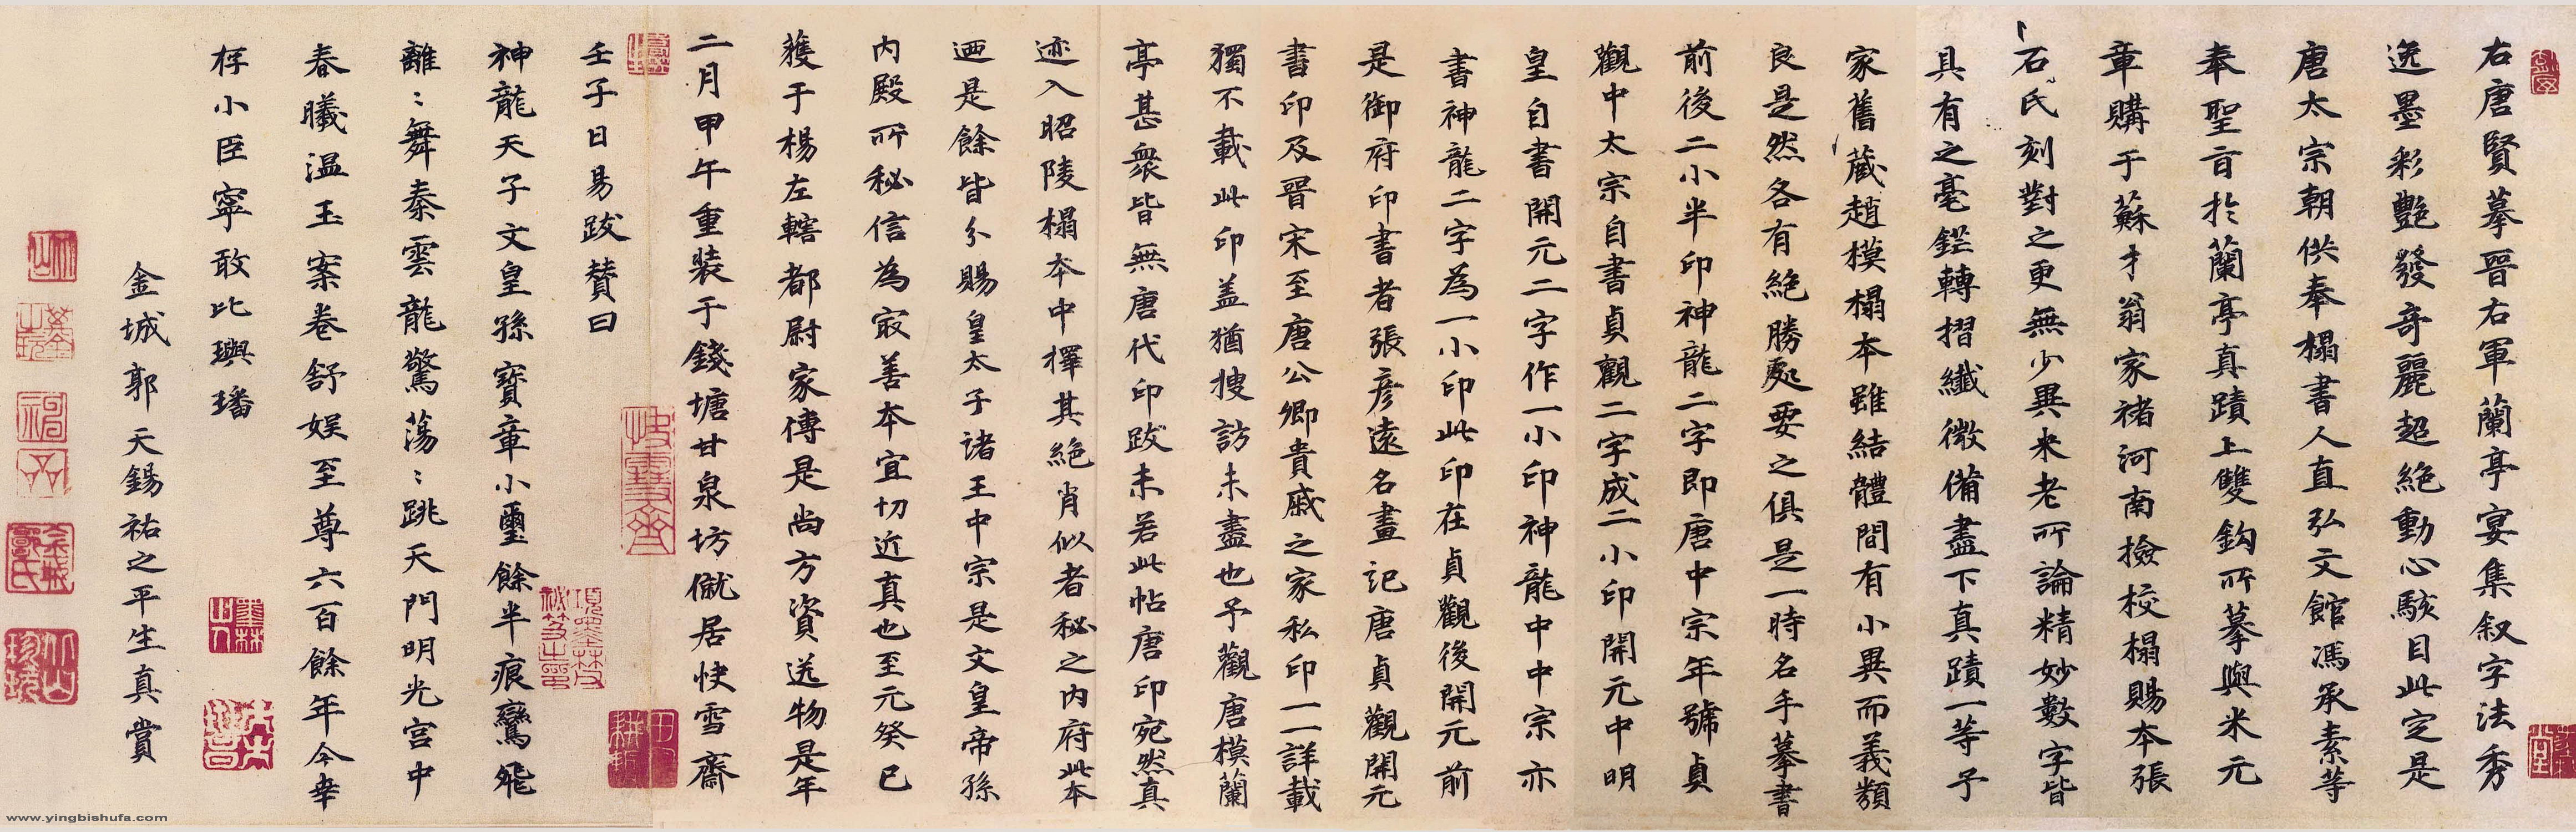 右唐賢摹晉右軍蘭亭宴集叙字法秀
逸墨彩艷發奇麗超絕動心駭目此定是
唐太宗朝供奉榻書人直弘文館馮承素等
奉聖旨於蘭亭真蹟上雙鈎所摹與米元
章購于蘇才翁家褚河南撿校榻賜本張
石氏刻對之更無少異米老所論精妙數字皆
具有之毫鋩轉摺纖微備盡下真蹟一等予
家舊藏趙模榻本雖結體間有小異而義類
良是然各有絕勝處要之俱是一時名手摹書
前後二小半印神龍二字即唐中宗年號貞
觀中太宗自書貞觀二字成二小印開元中明
皇自書開元二字作一小印神龍中中宗亦
書神龍二字為一小印此印在貞觀後開元前
是御府印書者張彥遠名畫記唐貞觀開元
書印及晉宋至唐公卿貴戚之家私印一一詳載
獨不載此印盖猶搜訪未盡也予觀唐模蘭
亭甚衆皆無唐代印跋未若此帖唐印宛然真
迹入昭陵榻本中擇其絕肖似者秘之内府此本
迺是餘皆分賜皇太子諸王中宗是文皇帝孫
内殿所秘信為㝡善本宜切近真也至元癸巳
獲于楊左轄都尉家傳是尚方資送物是年
二月甲午重裝于錢塘甘泉坊僦居快雪齋
壬子日易跋贊曰
神龍天子文皇孫寶章小璽餘半痕鸞飛
離〻舞秦雲龍驚蕩〻跳天門明光宫中
春曦温玉案卷舒娛至尊六百餘年今幸
存小臣寧敢比璵璠
金城郭天錫祐之平生真賞
快雪齋
項墨林父秘笈之印
www.yingbishufa.com